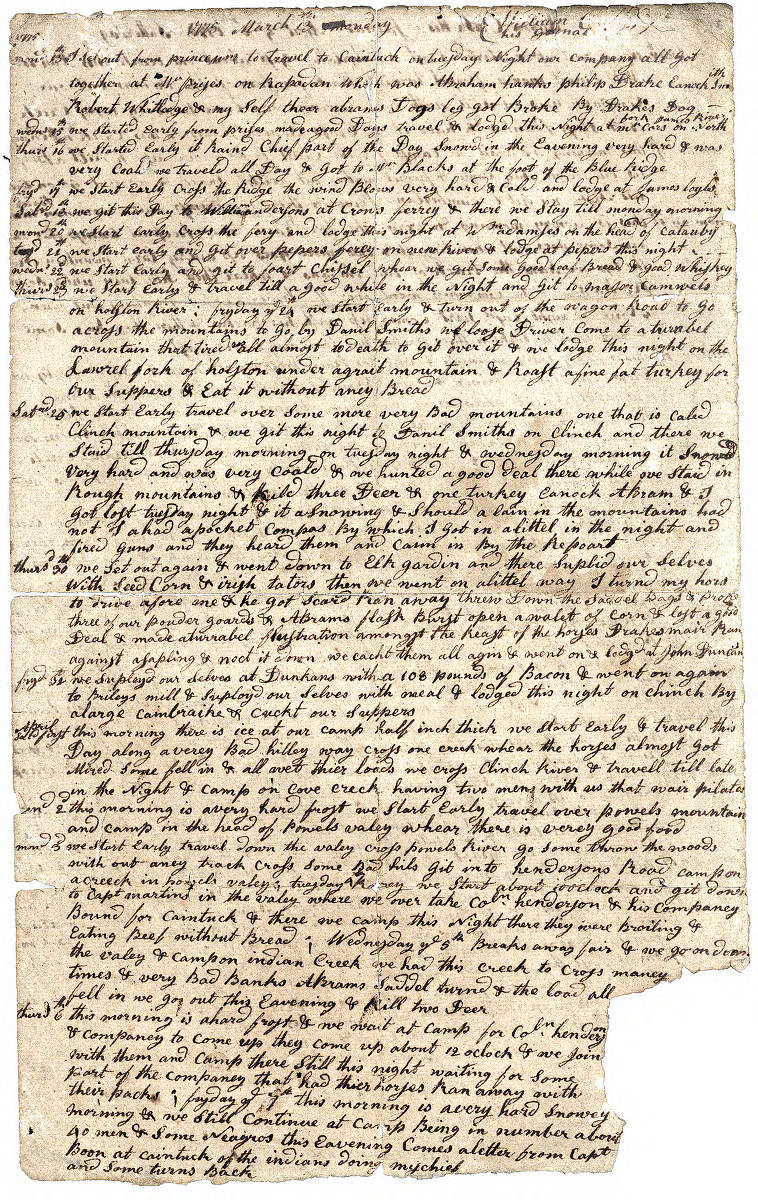 1775 March 13th monday William
his Jornal
mon 13 I set out from princeum to travel to Caintuck on tuesday Night our company all Got
together at Mr prises on Rapadan Which was Abraham hanks philip Drake Eanock Smith
Robert Whitledge & my Self thear abrams Dogs leg got Broke By Drakes Dog
weds 15th we Started early from prises made a good Days travel & lodge this Night at Mr Cars on North fork James River
thurs 16 we Started Early it Raind Chief part of the Day Snowd in the Eavening very hard & was
very Coald we traveld all Day & Got to Mr Blacks at the foot of the Blue Ridge
fryd 17 we Start Early Cross the Ridge the wind Blows very hard & Cold and lodge at James loyls
Satrd 18 we git this Day to William andersons at Crows ferry & there we Stay till monday morning
mon 20 we Start early Cross the fery and lodge this night at Wm adamses on the head of Catauby
tusd 21 we Start early and git over pepers ferey on new River & lodge at pepers this night
wedn 22d we Start Early and git to foart Chissel whear we git Some good loaf Bread & good Whiskey
thurs 23 we Start Early & travel till a good while in the Night and git to major Cammels
on holston River; fryday ye 24 we Start Early & turn out of the wagon Road to go
across the mountains to go by Danil Smiths we loose Driver Come to a turrabel
mountain that tired us all almost to death to git over it & we lodge this night on the
Lawrel fork of holston under agrait mountain & Roast a fine fat turkey for
our Suppers & Eat it without aney Bread
Satrd 25 we Start Early travel over Some more very Bad mountains one that is Caled
Clinch mountain & we git this night to Danil Smiths on Clinch and there we
Staid till thursday morning on tuesday night & wednesday morning it Snowd
very hard and was very Coald & we hunted a good deal there while we Staid in
Rough mountains & Kild three Deer & one turkey Eanock Abram & I
got lost tuesday night & it a Snowing & Should a lain in the mountains had
not I a had a pocket Compas By which I got in alittel in the night and
fired guns and they heard them and Caim in By the Repoart
thursd 30th we Set out again & went down to Elk gardin and there Suplid our Selves
With Seed Corn & irish tators then we went on alittel way I turnd my hors
to drive afore me & he got Scard Ran away threw Down the Saddel Bags & Broke
three of our powder goards & Abrams flask Burst open a walet of Corn & lost a good
Deal & made a turrabel flustration amongst the Reast of the horses Drakes mair Run
against a sapling & noct it down we cacht them all agin & went on & lodgd at John Duncans
fryd 31 we Suployd our Selves at Dunkans with a 108 pounds of Bacon & went on again
to Brileys mill & Suployd our Selves with meal & lodged this night on Clinch By
a large Cainbraike & Cuckt our Suppers
April
Satd first this morning there is ice at our camp half inch thick we Start Early & travel this
Day along a verey Bad hilley way cross one creek whear the horses almost got
Mired Some fell in & all wet thier loads we cross Clinch River & travell till late
in the Night & Camp on Cove creek having two men with us that wair pilates
2d this morning is a very hard frost we Start Early travel over Powels mountain
and camp in the head of Powels valey whear there is verey good food
mond 3 we Start Early travel down the valey cross powels River go some throw the woods
with out aney track cross some Bad hils git in to hendersons Road camp on
a creeck in powels valey; tuesday 4th we Start about 10 oclock and git down
to Capt martins in the valey where we over take Coln henderson & his Companey
Bound for Caintuck & there we camp this Night there they were Broiling &
Eating Beef without Bread; Wednesday ye 5th Breaks away fair & we go on down
the valey & camp on indian Creek we had this creek to Cross maney
times & very Bad Banks Abrams Saddel turnd & the load all
fell in we go out this Eavening & Kill two Deer
thurs 6th this morning is a hard frost & we wait at Camp for Coln henderson
& companey to come up they come up about 12 oclock & we Join
with them and Camp there Still this night waiting for Some
part of the companey that had thier horses Ran away with
their packs; fryday ye 7th this morning is a very hard Snowey
morning & we Still Continue at Camp Being in number about
40 men & Some Neagros this Eavening Comes a letter from Capt
Boon at caintuck of the indians doing mischief
and Some turns Back